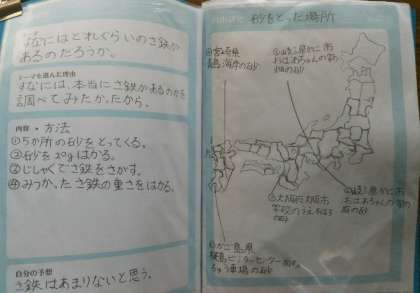 すなにはどれぐらいのさ鉄が
あるのだろうか。
テーマを選んだ理由
すなには、本当にさ鉄があるのかを
調べてみたかったから。
内容・方法
①5か所の砂をとってくる。
②砂を20gはかる。
③じしゃくでさ鉄をさがす。
④みつかったさ鉄の重さをはかる。
自分の予想
さ鉄はあまりないと思う。
砂をとった場所
宮崎県
海岸の砂
かに市
おばあちゃんの家の
畑の砂
かに市
おばあちゃんの家の
砂
大阪府大阪市
学校の
砂
かご島県
ビジターセンター
ちゅう車場の砂